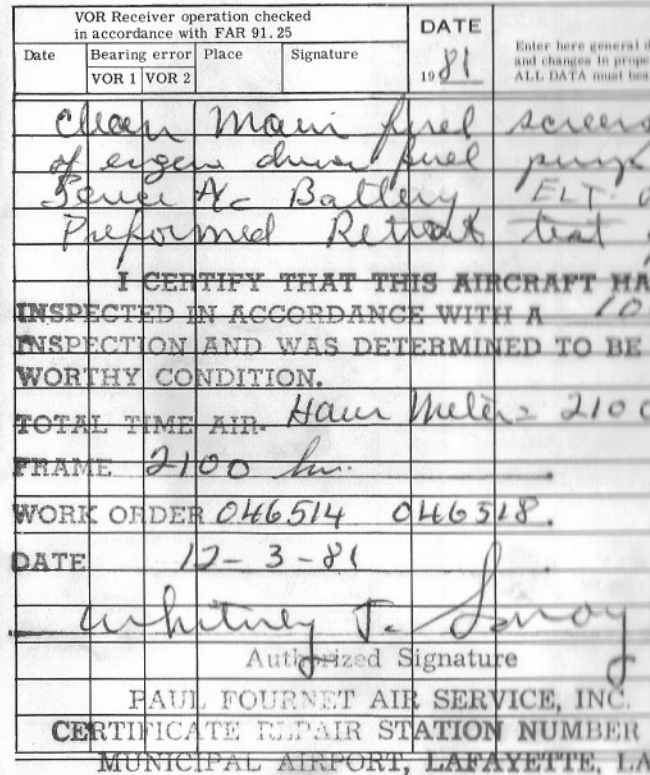 VOR Receiver operation checked
in accordance with FAR 91.25
DATE
Date Bearing error Place Signature
VOR 1 VOR 2
1981
Enter here general d
and changes in prope
ALL DATA must bea
Clean Main fuel screens
of engen driven fuel pump
A/C Battery ELT
Preformed Retrack test
I CERTIFY THAT THIS AIRCRAFT HA
INSPECTED IN ACCORDANCE WITH A 10
INSPECTION AND WAS DETERMINED TO BE
WORTHY CONDITION.
TOTAL TIME AIR- Hour Meter = 2100
FRAME 2100 hrs.
WORK ORDER 046514 046518.
DATE 12-3-81
Whitney J. Savoy
Authorized Signature
PAUL FOURNET AIR SERVICE, INC.
CERTIFICATE REPAIR STATION NUMBER
MUNICIPAL AIRPORT, LAFAYETTE, LA